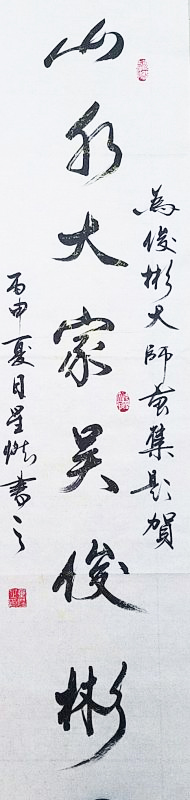 為俊彬大師畫集題賀
山水大家吴俊彬
丙申夏月星書之